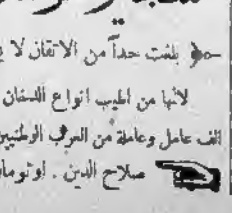 بلغت حداً من الاتقان لا
لانها من اطيب انواع الدخان
الف عامل وعاملة من العرب الوطنيين
صلاح الدين . لوثوما